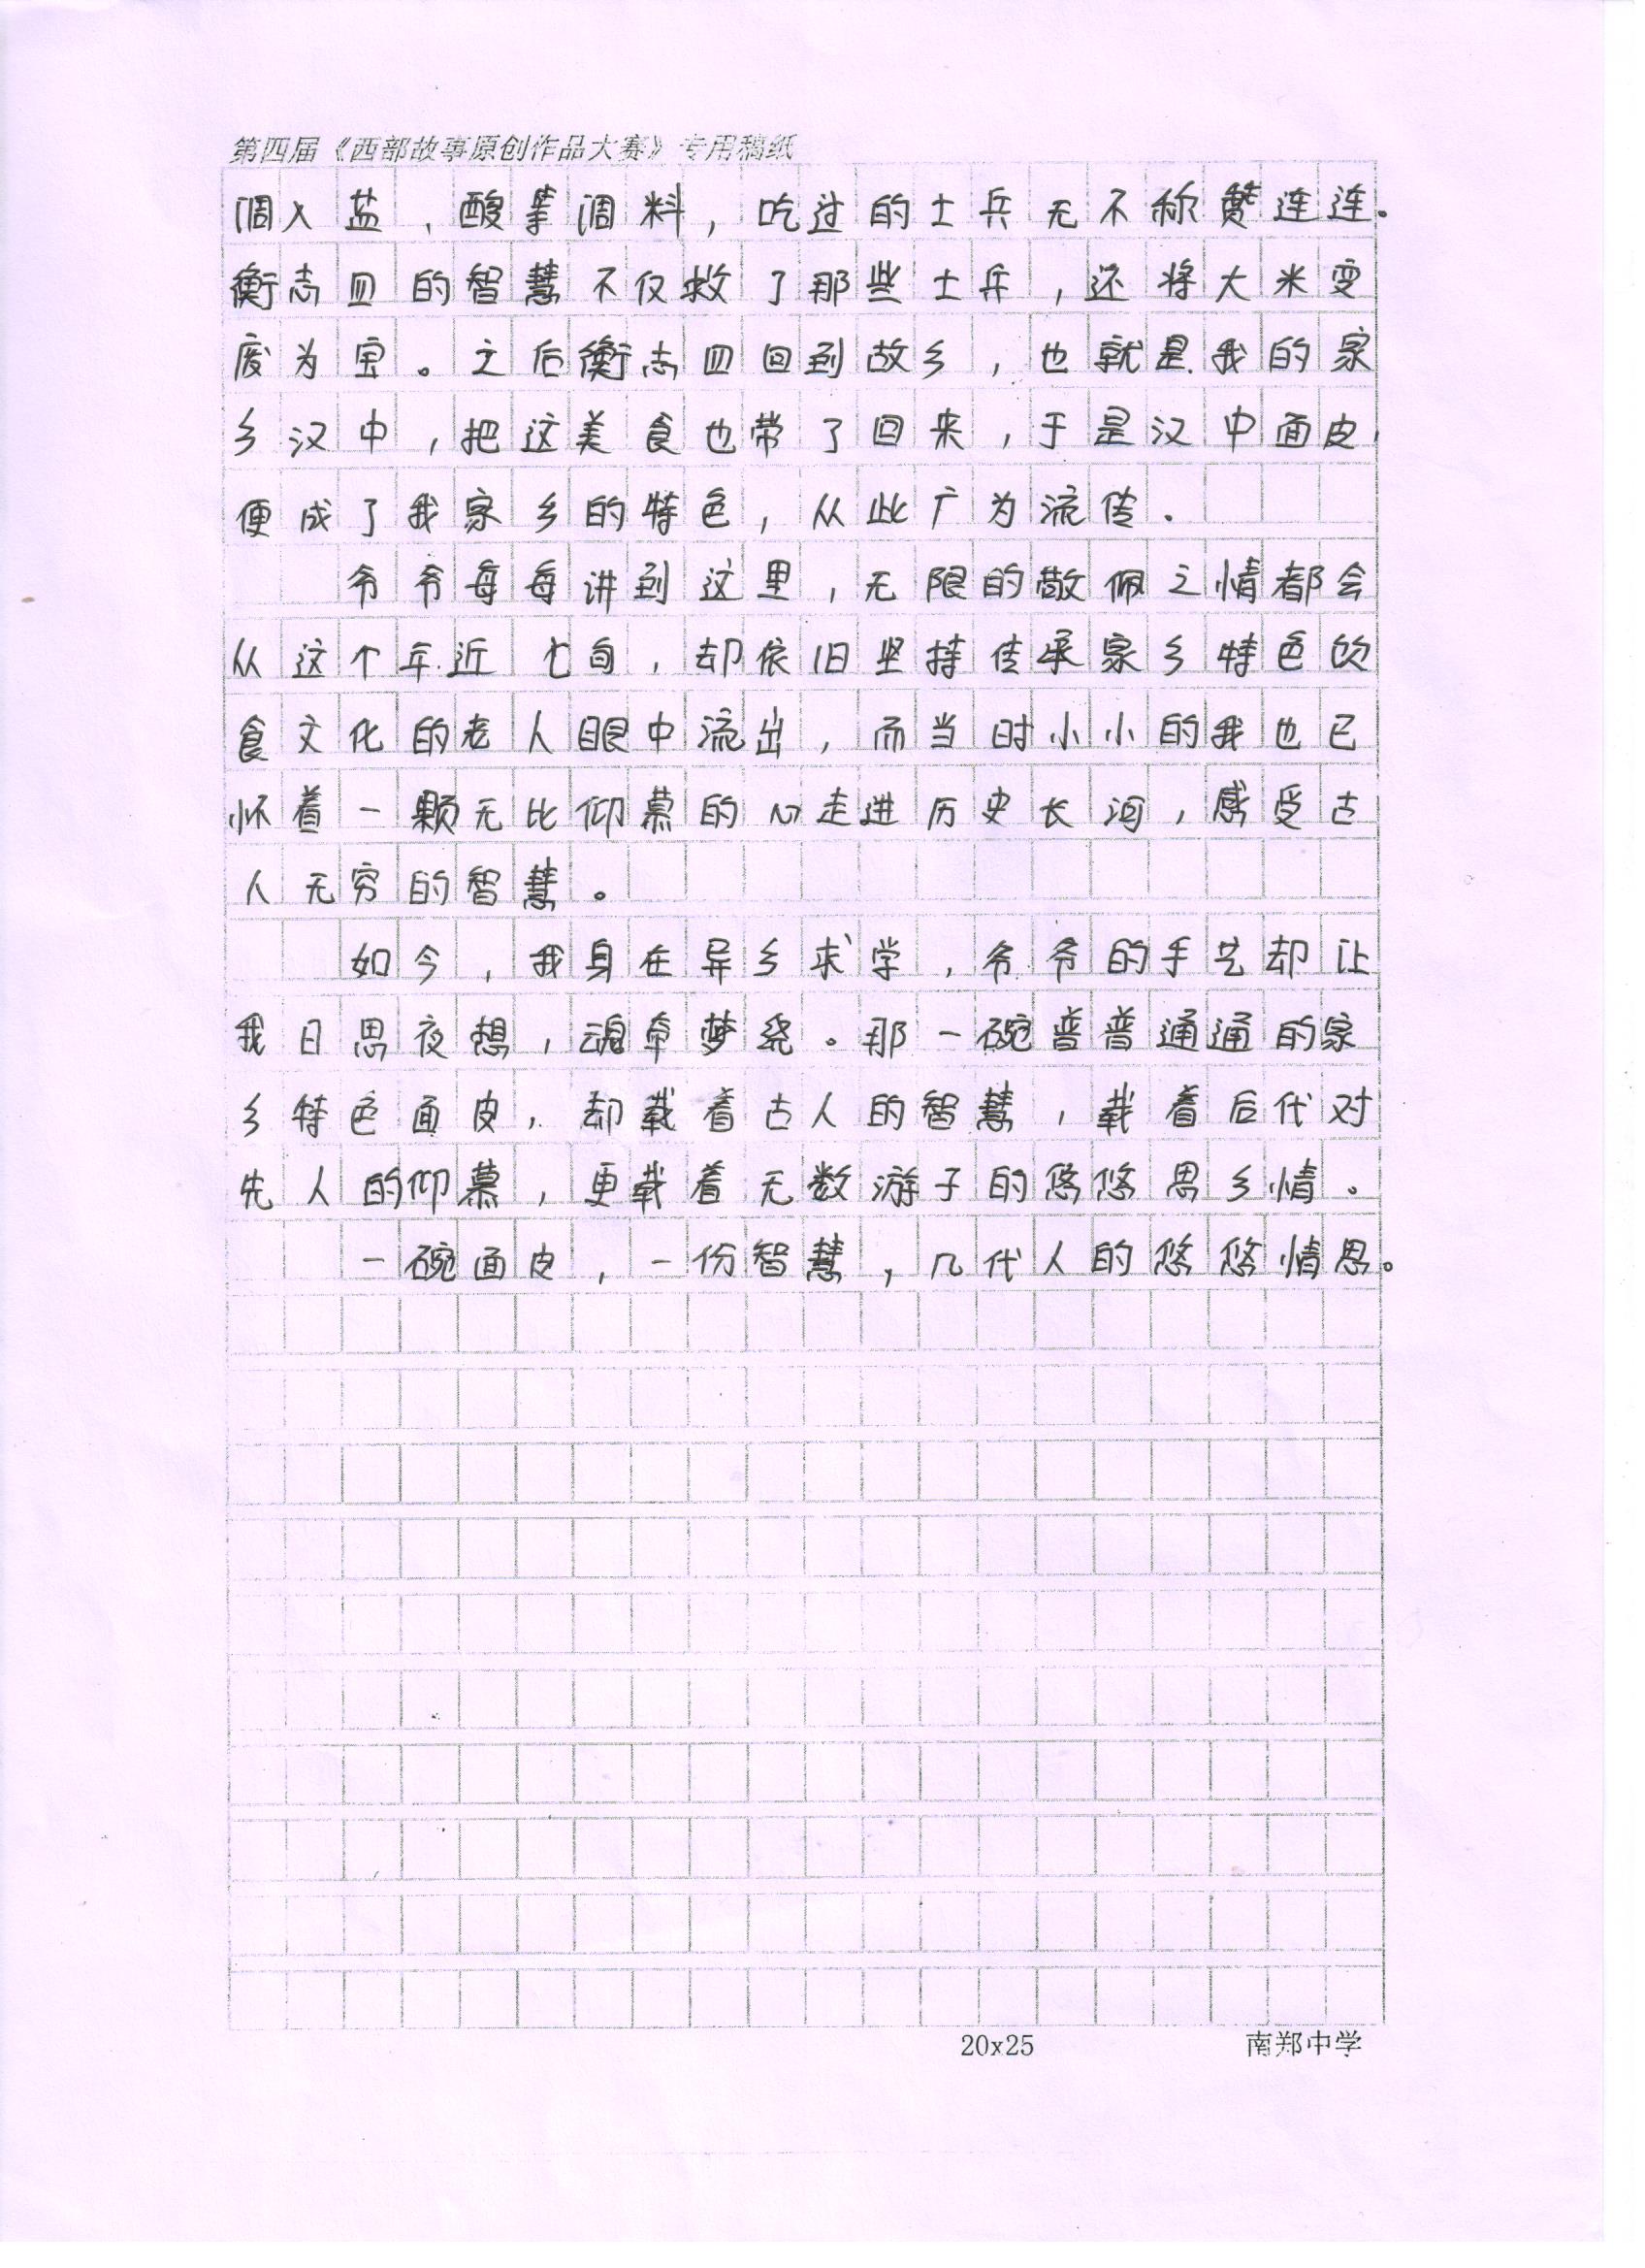 第四届《西部故事原创作品大赛》专用稿纸
调入盐，酸等调料，吃过的士兵无不称赞连连。
衡志四的智慧不仅救了那些士兵，还将大米变
废为宝。之后衡志四回到故乡，也就是我的家
乡汉中，把这美食也带了回来，于是汉中面皮
便成了我家乡的特色，从此广为流传.
爷爷每每讲到这里，无限的敬佩之情都会
从这个年近七旬，却依旧坚持传承家乡特色饮
食文化的老人眼中流出，而当时小小的我也已
怀着一颗无比仰慕的心走进历史长河，感受古
人无穷的智慧。
如今，我身在异乡求学，爷爷的手艺却让
我日思夜想，魂牵梦绕。那一碗普普通通的家
乡特色面皮，却载着古人的智慧，载着后代对
先人的仰慕，更载着无数游子的悠悠思乡情。
一碗面皮，一份智慧，几代人的悠悠情思。
20x25 南郑中学